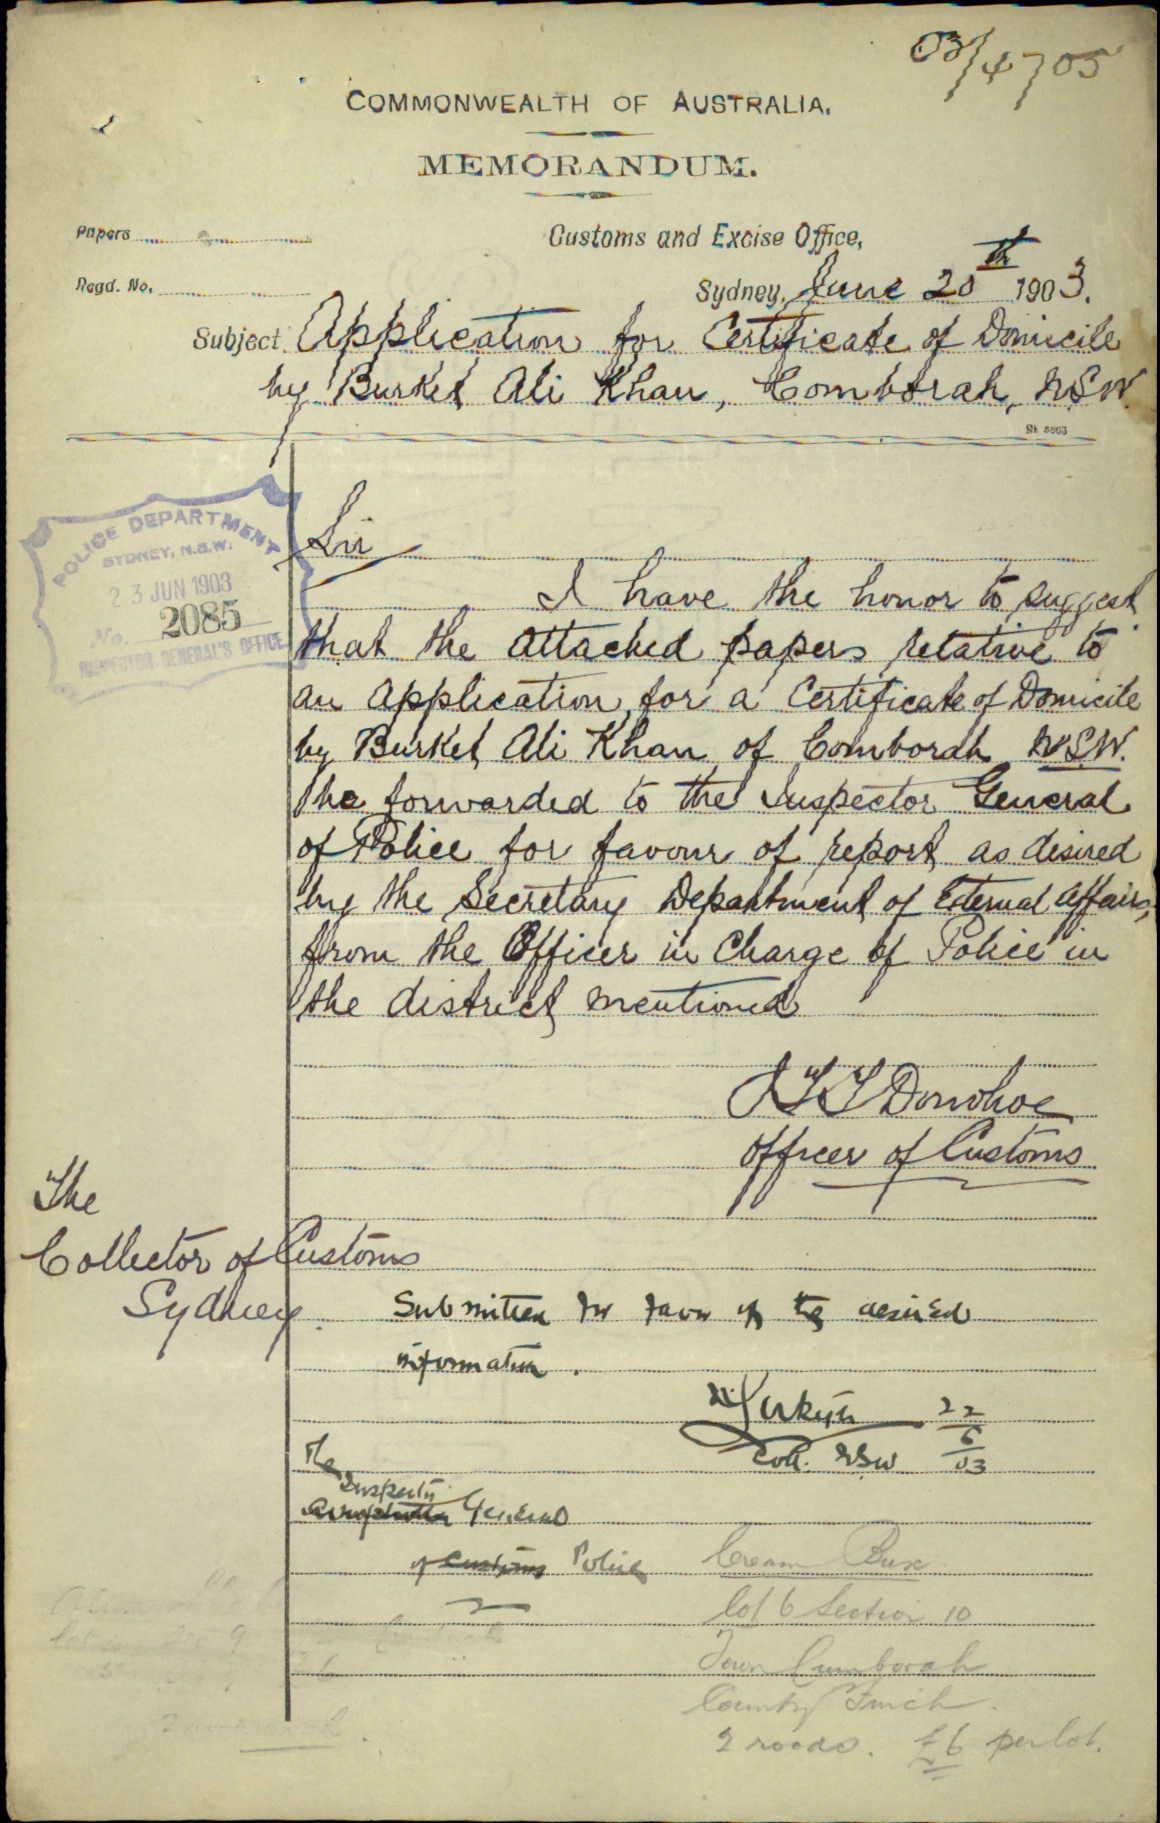 03/4705
COMMONWEALTH OF AUSTRALIA.
MEMORANDUM.
Papers
Customs and Excise Office,
Regd. No.
Sydney, June 20th 1903.
Subject. Application for Certificate of Domicile
by Burket Ali Khan, Comborah, N.S.W.
POLICE DEPARTMENT
SYDNEY, N.S.W.
23 JUN 1903
No. 2085
INSPECTOR GENERAL'S OFFICE
Sir
I have the honor to suggest
that the attached papers relative to
an application for a Certificate of Domicile
by Burket Ali Khan of Comborah N.S.W.
be forwarded to the Inspector General
of Police for favour of report as desired
by the Secretary Department of External Affairs,
from the Officer in Charge of Police in
the district mentioned
Donohoe
Officer of Customs
The
Collector of Customs
Sydney.
Submitted for favor of the desired
information.
Coll. NSW 22/6/03
The
Inspector
General
of Customs Police
Cream Bux
lot 6 Section 10
Town Cumborah
County Finch.
2 roods. £6 per lot.